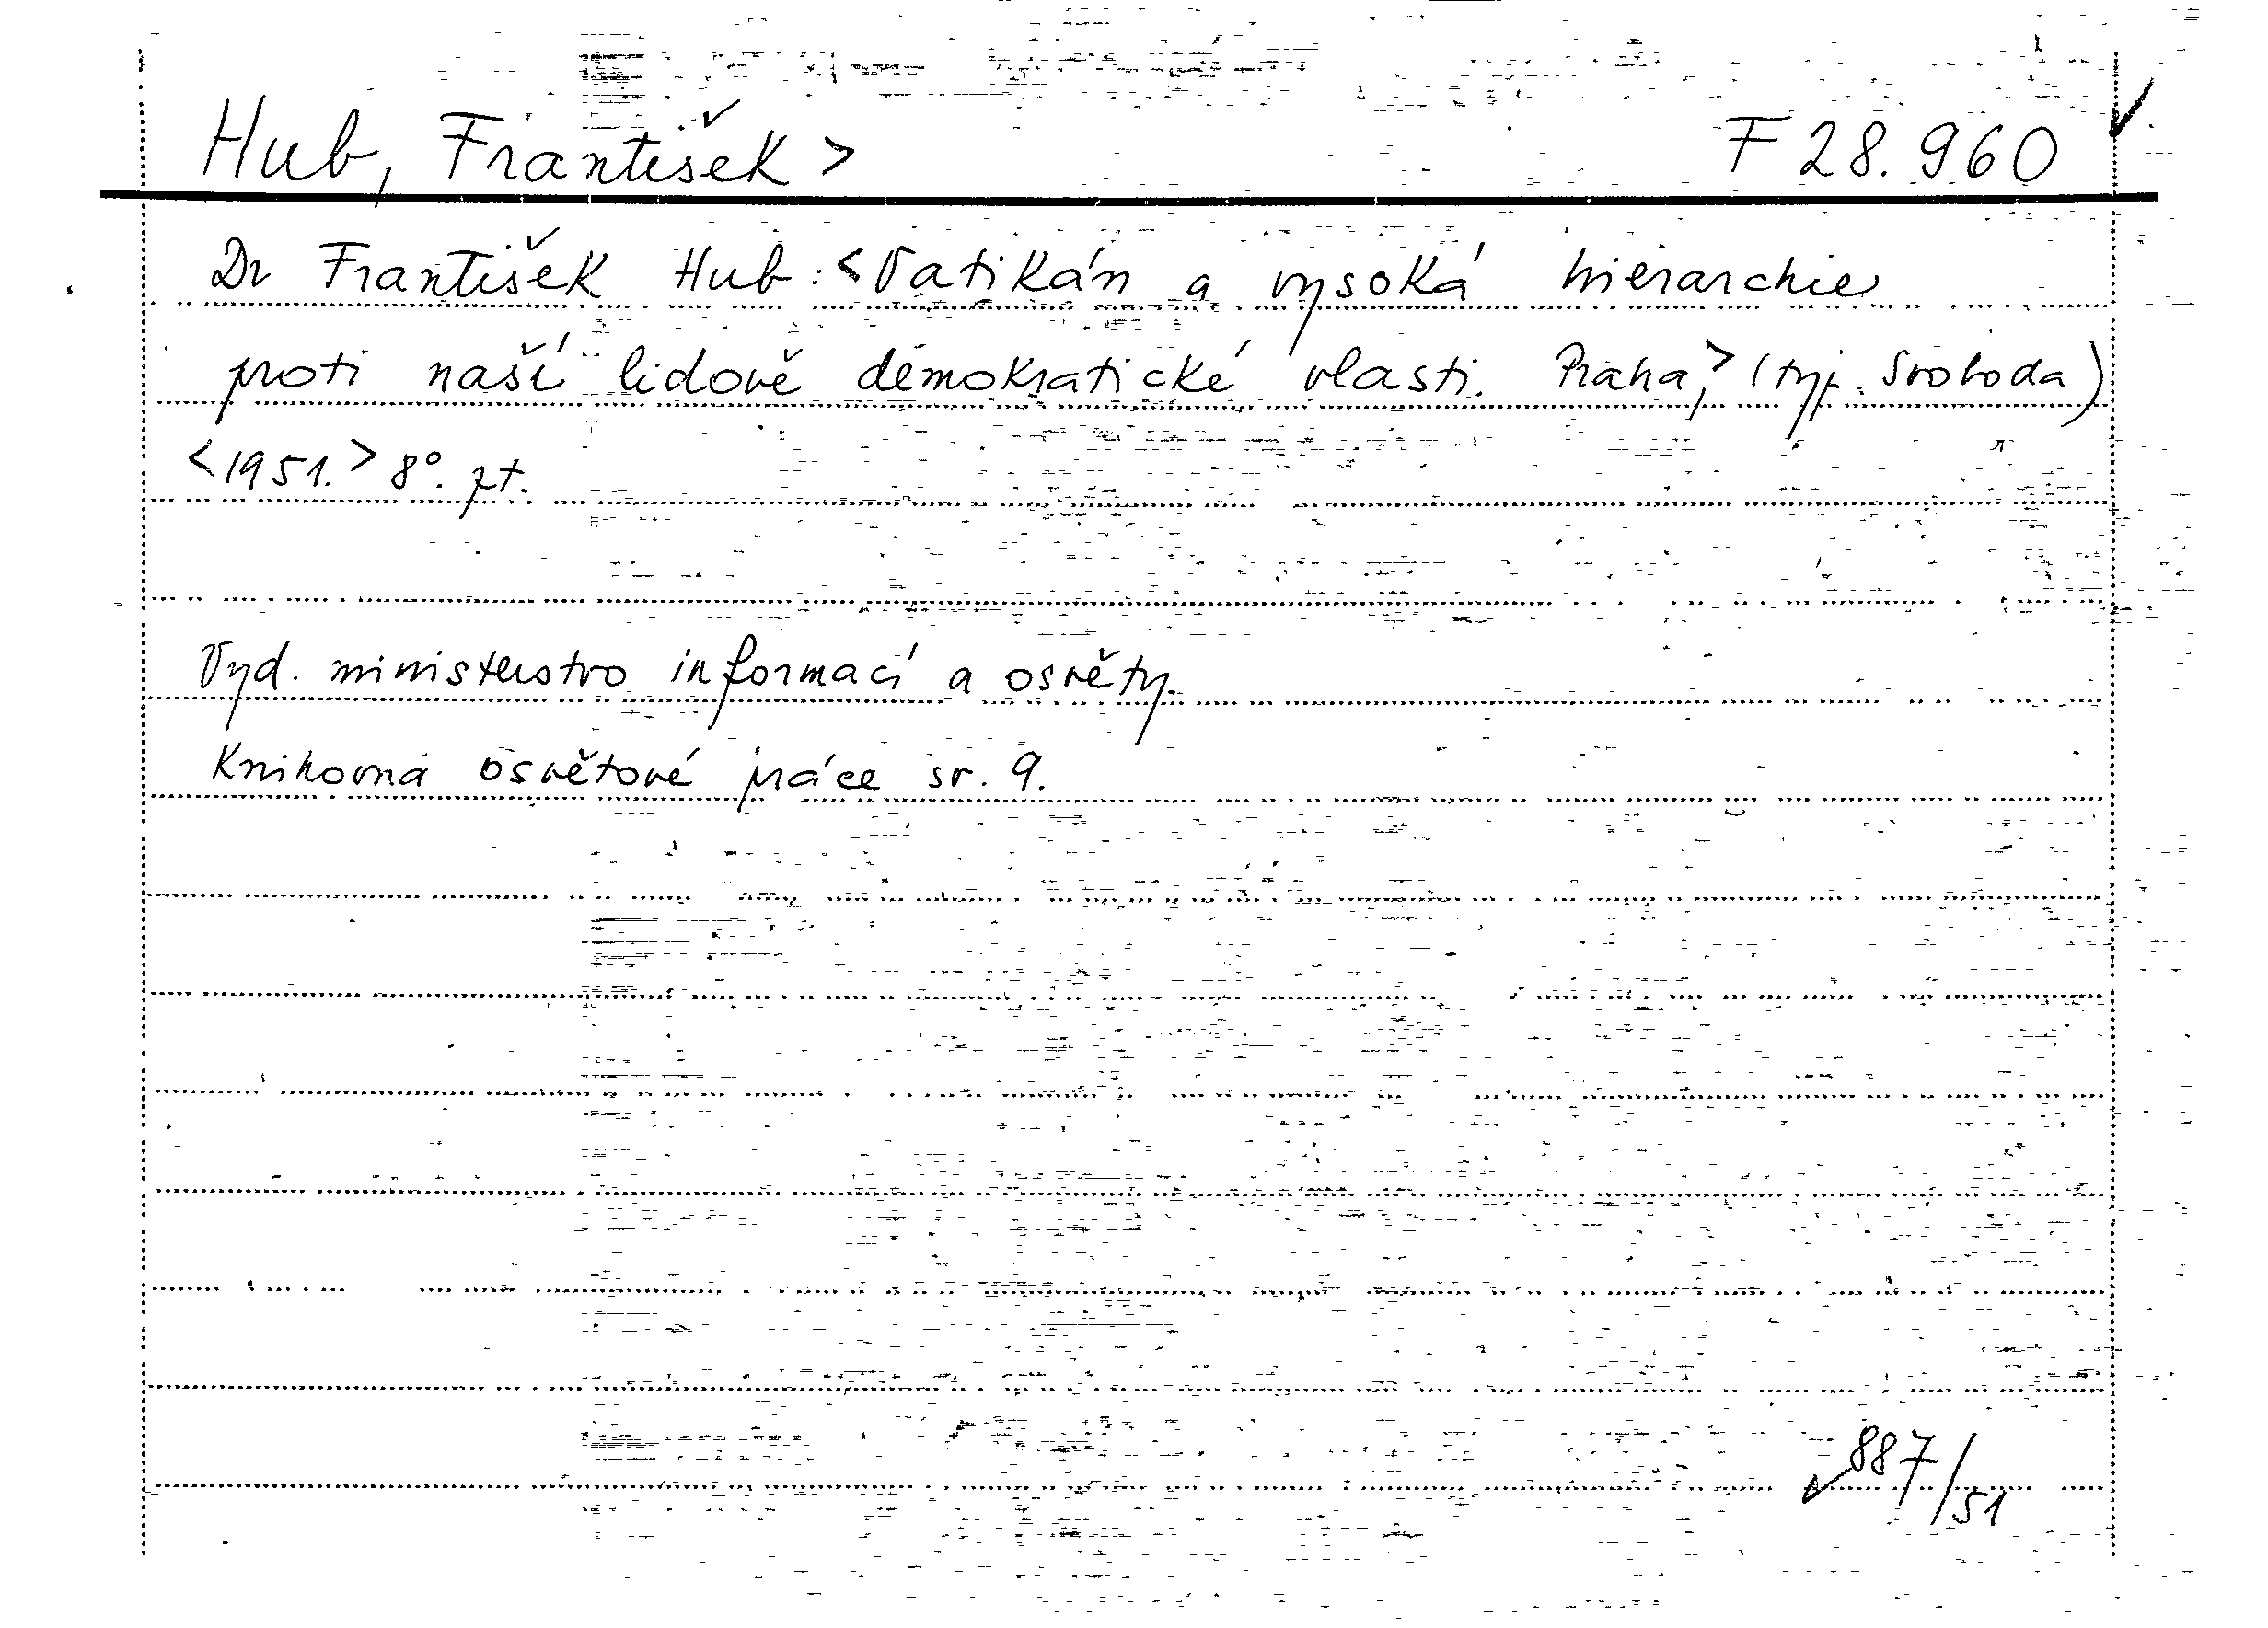 Hub, František > F 28.960 ✓
Dr František Hub: <Vatikán a vysoká hierarchie
proti naší lidově demokratické vlasti. Praha,> (typ. Svoboda)
<1951.> 8°. zt.
Vyd. ministerstvo informací a osvěty.
Knihovna osvětové práce sv. 9.
✓887/51